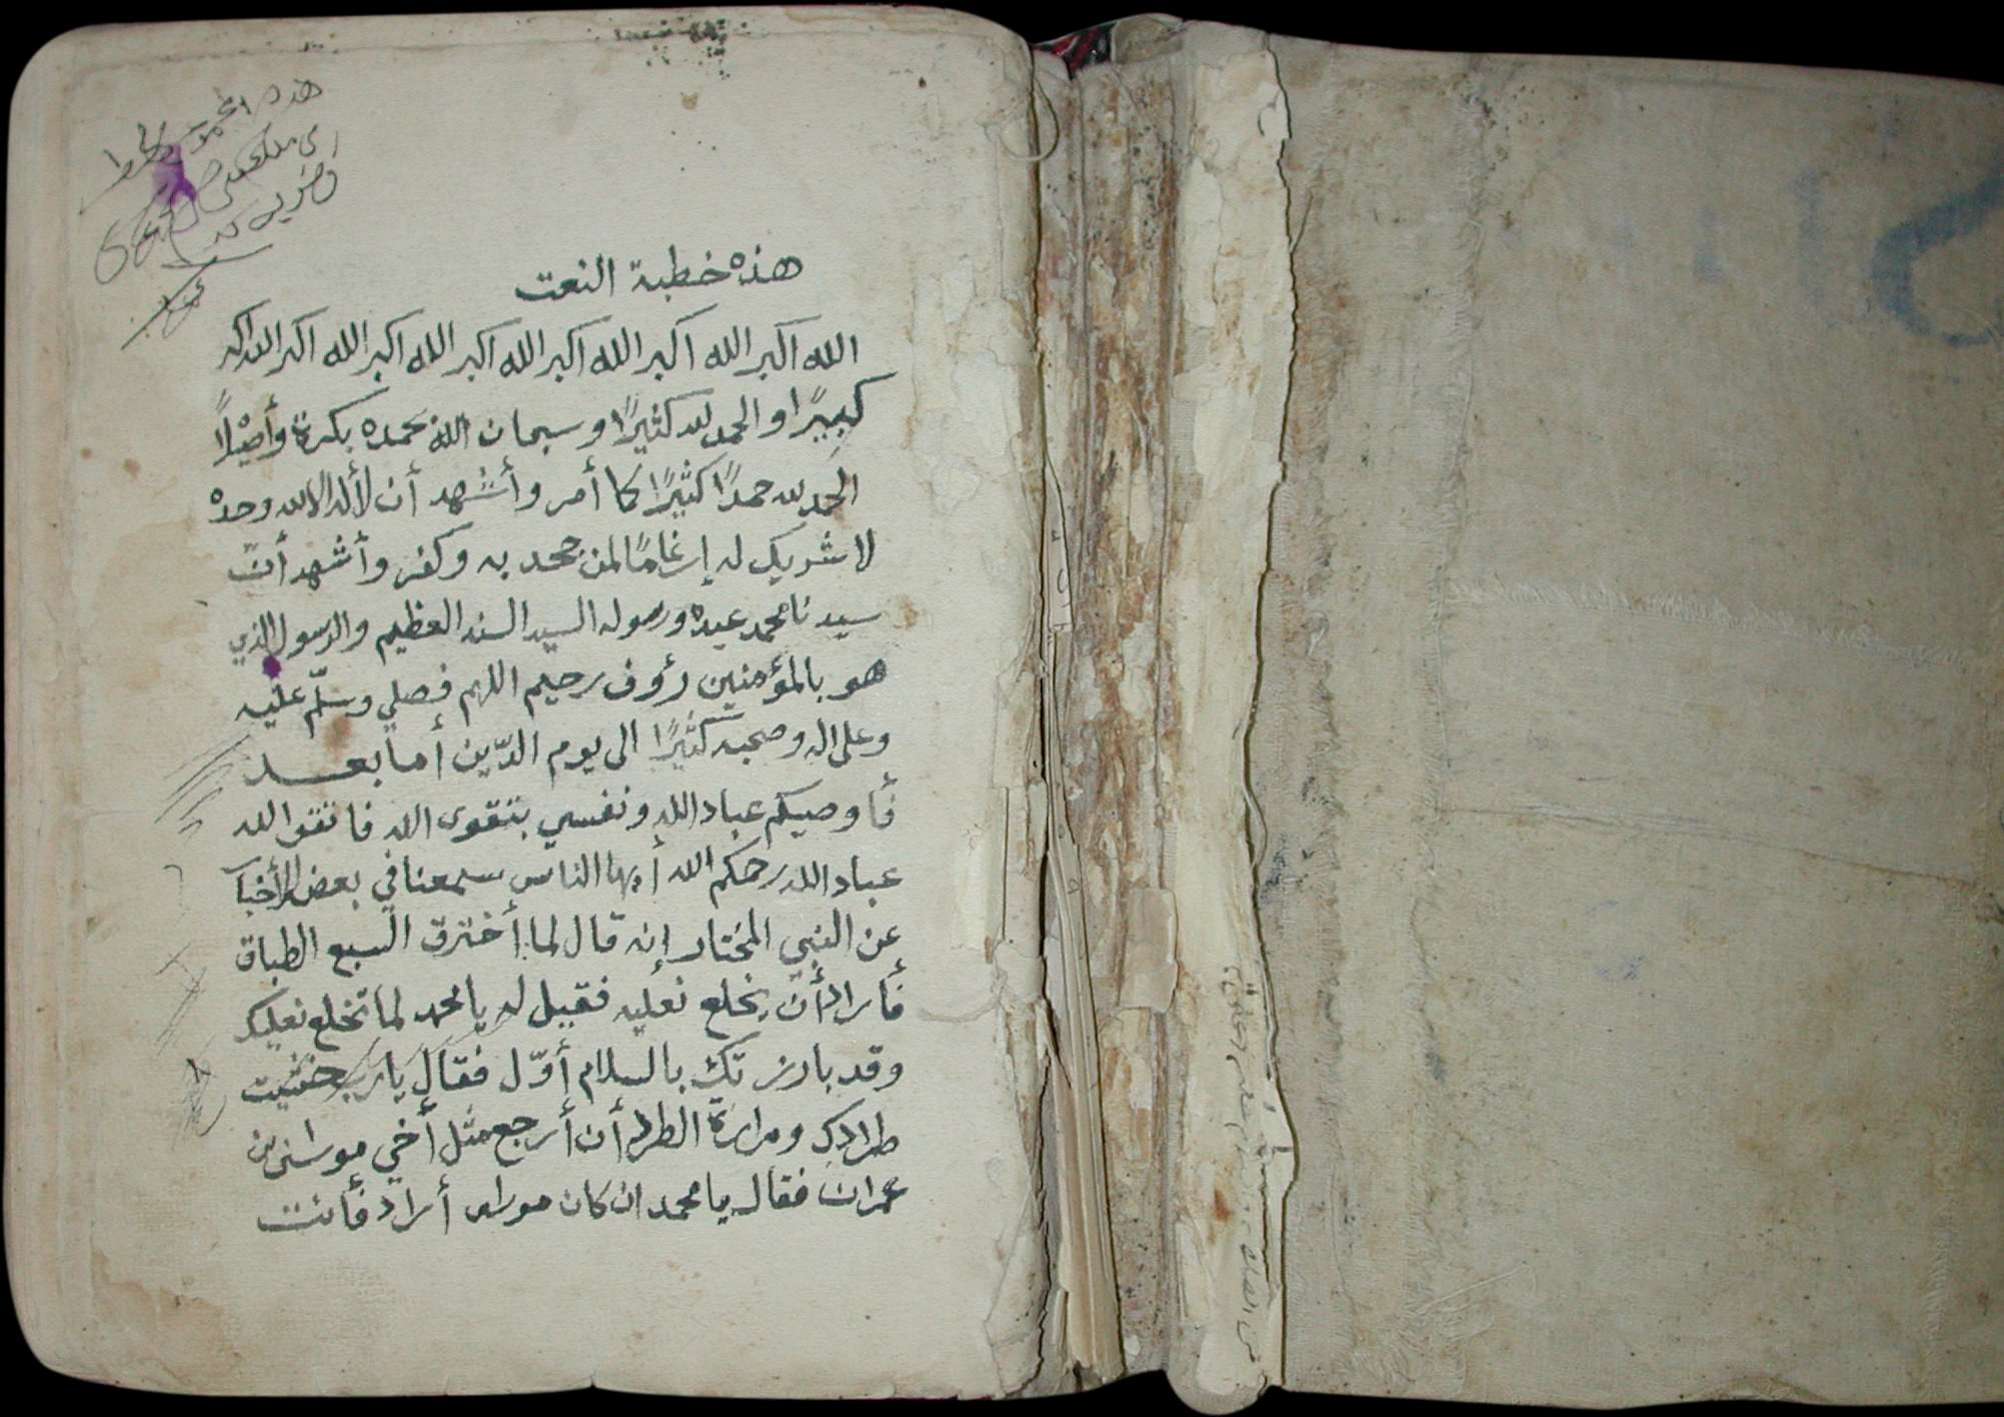 هذه خطبة النعت
الله اكبر الله اكبر الله اكبر الله اكبر الله اكبر الله اكبر الله اكبر
كبيرًا والحمد لله كثيرًا وسبحان الله بحمده بكرة وأصيلًا
الحمد لله حمدًا كثيرًا كما أمر وأشهد أن لا أله الا الله وحده
لا شريك له إرغامًا لمن جحد به وكفر وأشهد أنّ
سيدنا محمد عبده ورسوله السيد السند العظيم والرسول الذي
هو بالمؤمنين رؤوف رحيم اللهم فصلي وسلّم عليه
وعلى اله وصحبه كثيرًا الى يوم الدّين أما بعد
فأوصيكم عباد الله ونفسي بتقوى الله فاتقوا الله
عباد الله رحمكم الله أيها الناس سمعنا في بعض الأخبار
عن النبي المختار إنه قال لما أخترق السبع الطباق
فأراد أن يخلع نعليه فقيل له يا محمد لما تخلع نعليك
وقد بادرتك بالسلام أوّل فقال يارب خشيت
طرادك ومرارة الطرد أن أرجع مثل أخي موسى بن
عمران فقال يا محمد ان كان موسى أراد فأنت